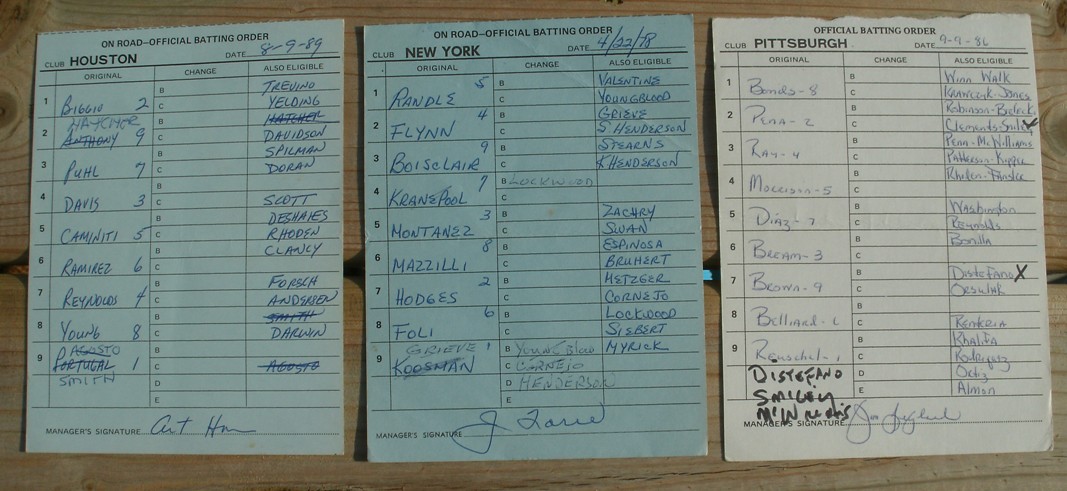 ON ROAD–OFFICIAL BATTING ORDER
CLUB HOUSTON DATE 8-9-89
ORIGINAL CHANGE ALSO ELIGIBLE
B TREVINO
1 BIGGIO 2 C YELDING
HATCHER B HATCHER
2 ANTHONY 9 C DAVIDSON
B SPILMAN
3 PUHL 7 C DORAN
B
4 DAVIS 3 C SCOTT
B DESHAIES
5 CAMINITI 5 C RHODEN
B CLANCY
6 RAMIREZ 6 C
B FORSCH
7 REYNOLDS 4 C ANDERSEN
B SMITH
8 YOUNG 8 C DARWIN
AGOSTO B
9 PORTUGAL 1 C AGOSTO
SMITH D
E
MANAGER'S SIGNATURE Art How
ON ROAD–OFFICIAL BATTING ORDER
CLUB NEW YORK DATE 4/22/78
ORIGINAL CHANGE ALSO ELIGIBLE
5 B VALENTINE
1 RANDLE C YOUNGBLOOD
4 B GRIEVE
2 FLYNN C S HENDERSON
9 B STEARNS
3 BOISCLAIR C K HENDERSON
7 B LOCKWOOD
4 KRANEPOOL C
3 B ZACHRY
5 MONTANEZ C SWAN
8 B ESPINOSA
6 MAZZILLI C BRUHERT
2 B METZGER
7 HODGES C CORNEJO
6 B LOCKWOOD
8 FOLI C SIEBERT
GRIEVE 1 B Youngblood MYRICK
9 KOOSMAN C CORNEJO
D HENDERSON
E
MANAGER'S SIGNATURE J Torre
OFFICIAL BATTING ORDER
CLUB PITTSBURGH DATE 9-9-86
ORIGINAL CHANGE ALSO ELIGIBLE
B Winn Walk
1 Bonds-8 C Krawczyk-Jones
B Robinson-Bielecki
2 Pena-2 C Clements-Smiley
B Pena-McWilliams
3 Ray-4 C Patterson-Kipper
B Rhoden-Fansler
4 Morrison-5 C
B Washington
5 Diaz-7 C Reynolds
B Bonilla
6 Bream-3 C
B Distefano X
7 Brown-9 C Orsulak
B
8 Belliard-6 C Renteria
B Khalifa
9 Reuschel-1 C Rodriguez
DISTEFANO D Ortiz
SMILEY E Almon
MANAGER'S SIGNATURE Jim Leyland